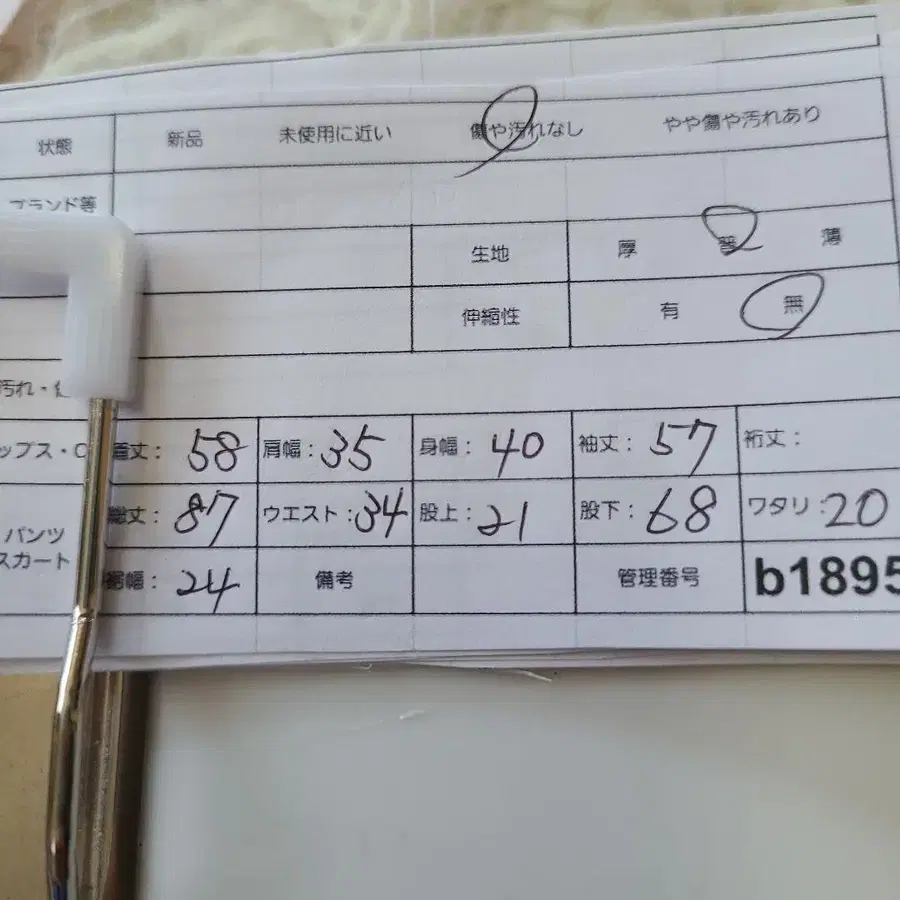 状態 新品 未使用に近い 傷や汚れなし やや傷や汚れあり
ブランド等
生地 厚 普 薄
伸縮性 有 無
汚れ・
ップス・O 着丈: 58 肩幅: 35 身幅: 40 袖丈: 57 裄丈:
パンツ 総丈: 87 ウエスト: 34 股上: 21 股下: 68 ワタリ: 20
スカート 裾幅: 24 備考 管理番号 b1895